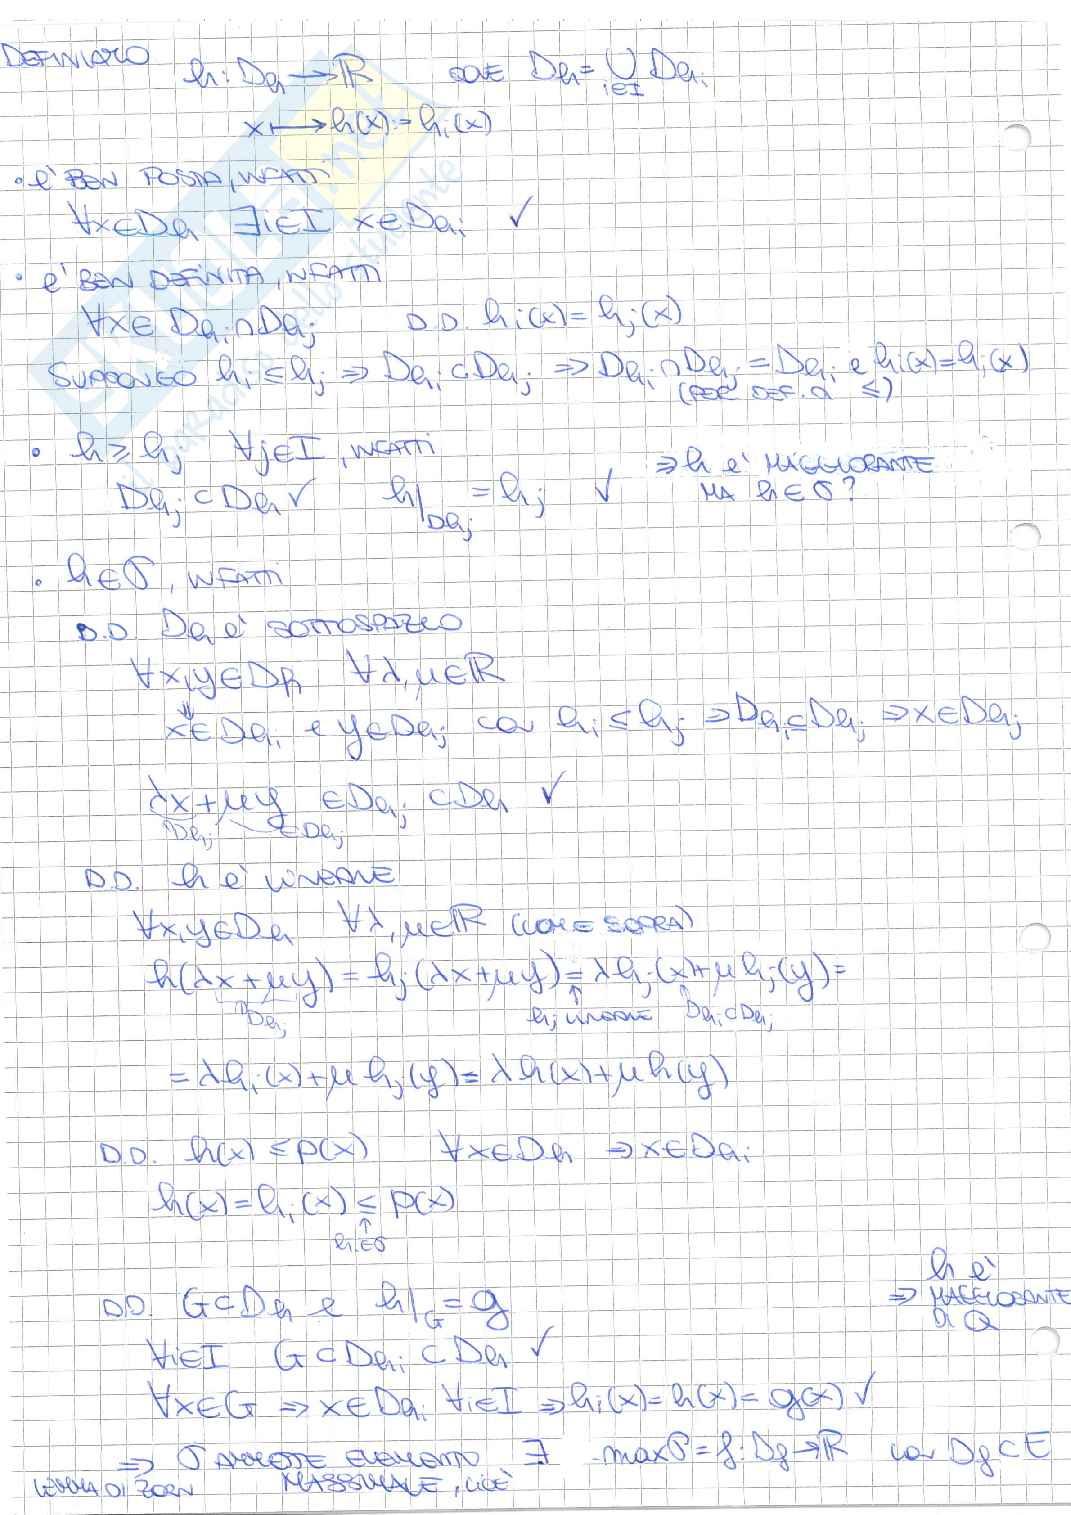 DEFINIAMO h: D_h → ℝ DOVE D_h = ⋃_{i∈I} D_{h_i}
x ↦ h(x) := h_i(x)
• è BEN POSTA, INFATTI
∀x∈D_h ∃i∈I x∈D_{h_i} ✓
• è BEN DEFINITA, INFATTI
∀x∈ D_{h_i}∩D_{h_j} D.D. h_i(x) = h_j(x)
SUPPONGO h_i ≤ h_j ⇒ D_{h_i}⊂D_{h_j} ⇒ D_{h_i}∩D_{h_j} = D_{h_i} e h_i(x)=h_j(x)
(PER DEF. DI ≤)
• h ≥ h_j ∀j∈I, INFATTI
⇒ h è MAGGIORANTE
D_{h_j} ⊂ D_h ✓ h|_{D_{h_j}} = h_j ✓ MA h∈σ?
• h∈σ, INFATTI
D.D. D_h è SOTTOSPAZIO
∀x,y∈D_h ∀λ,μ∈ℝ
⇓
x∈D_{h_i} e y∈D_{h_j} con h_i ≤ h_j ⇒ D_{h_i}⊆D_{h_j} ⇒ x∈D_{h_j}
λx+μy ∈D_{h_j} ⊂D_h ✓
D_{h_j} ∈D_{h_j}
D.D. h è LINEARE
∀x,y∈D_h ∀λ,μ∈ℝ (COME SOPRA)
h(λx+μy) = h_j(λx+μy) = λh_j(x)+μh_j(y)=
∩D_{h_j} ↑ h_j LINEARE D_{h_i}⊂D_{h_j}
= λh_i(x)+μh_j(y) = λh(x)+μh(y)
D.D. h(x) ≤ p(x) ∀x∈D_h ⇒ x∈D_{h_i}
h(x) = h_i(x) ≤ p(x)
↑
h_i∈σ
h è
D.D. G⊂D_h e h|_G = g ⇒ MAGGIORANTE
DI Q
∀i∈I G⊂D_{h_i}⊂D_h ✓
∀x∈G ⇒ x∈D_{h_i} ∀i∈I ⇒ h_i(x) = h(x) = g(x) ✓
⇒ σ AMMETTE ELEMENTO ∃ max σ = f: D_f → ℝ con D_f ⊂ E
LEMMA DI ZORN MASSIMALE, CIOÈ